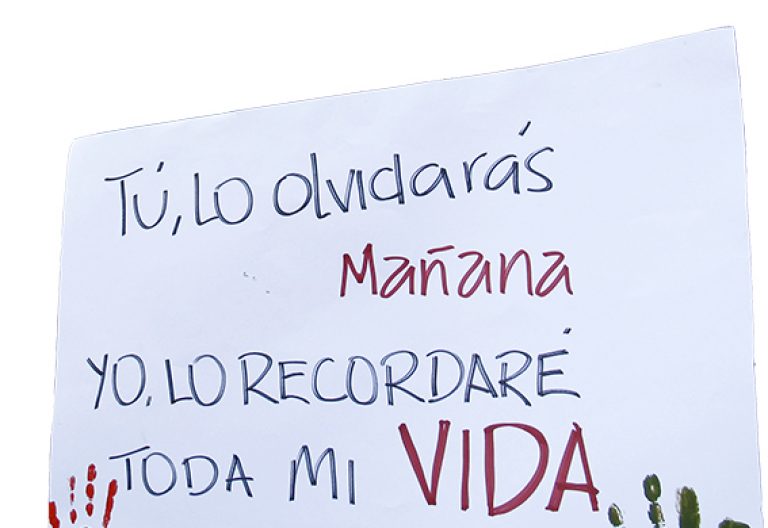 Tú, LO olvidarás
Mañana
YO, LO RECORDARÉ
TODA MI VIDA